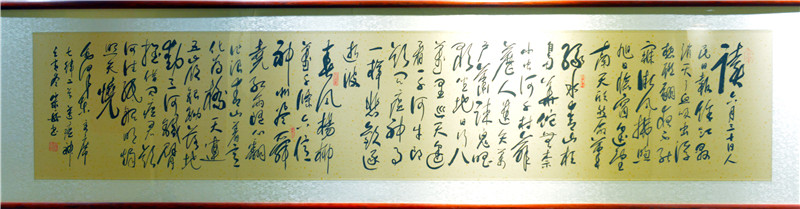 读六月三十日人
民日报余江县
消灭了血吸虫浮
想联翩夜不能
寐微风拂煦
旭日临窗遥望
南天欣然命笔
绿水青山枉自多
华佗无奈
小虫何千村薜
荔人遗矢万
户萧疏鬼唱
歌坐地日行八
万里巡天遥
看一千河牛郎
欲问瘟神事
一样悲欢逐
逝波
春风杨柳
万千条六亿
神州尽舜
尧红雨随心翻
作浪青山着意
化为桥天连
五岭银锄落地
动三河铁臂
摇借问瘟君欲
何往纸船明烛
照天烧
毛泽东主席
七律二首送瘟神